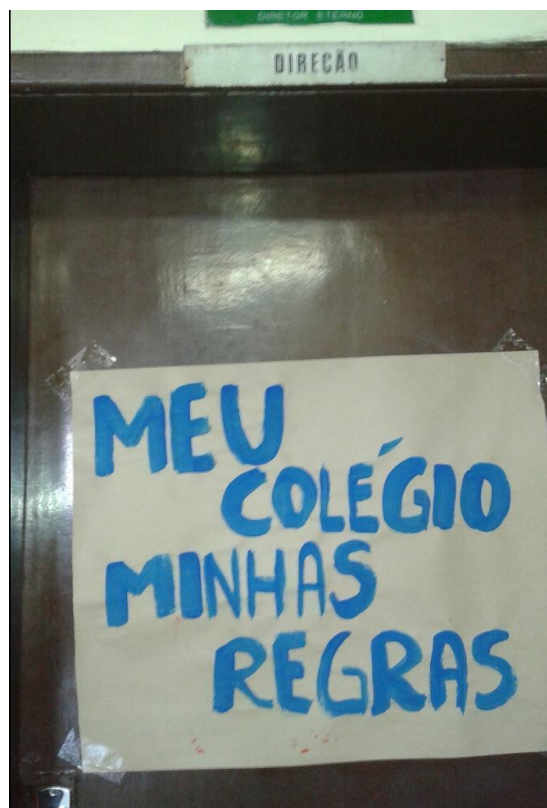 DIRETOR ETERNO
DIREÇÃO
MEU
COLÉGIO
MINHAS
REGRAS